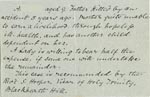 A      aged 9 Father killed by an
accident 3 years ago. Mother quite unable
to earn a livelihood through hopeless
ill-health, and has another child
dependent on her.
A Lady is willing to bear half the
expense, if some one will undertake
the remainder.
This case is recommended by the
Rev. S. Hogan, Vicar of Holy Trinity,
Blackheath Hill.